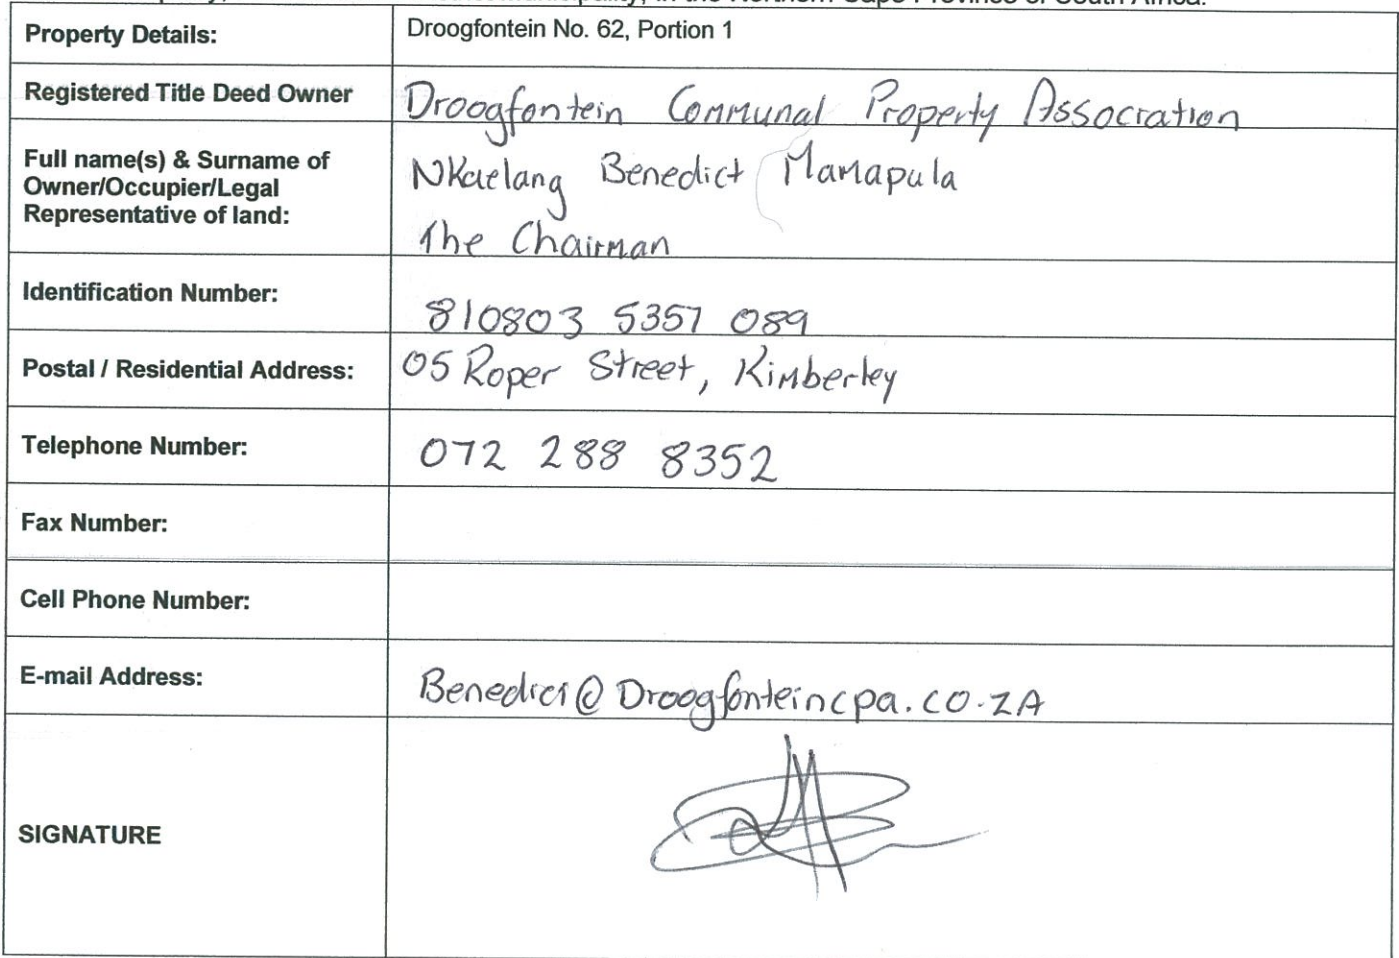 in the Northern Cape Province of South Africa.
Property Details: Droogfontein No. 62, Portion 1
Registered Title Deed Owner Droogfontein Communal Property Association
Full name(s) & Surname of
Owner/Occupier/Legal
Representative of land:
Nkaelang Benedict Mamapula
The Chairman
Identification Number: 810803 5357 089
Postal / Residential Address: 05 Roper Street, Kimberley
Telephone Number: 072 288 8352
Fax Number:
Cell Phone Number:
E-mail Address: Benedict@Droogfonteincpa.co.ZA
SIGNATURE